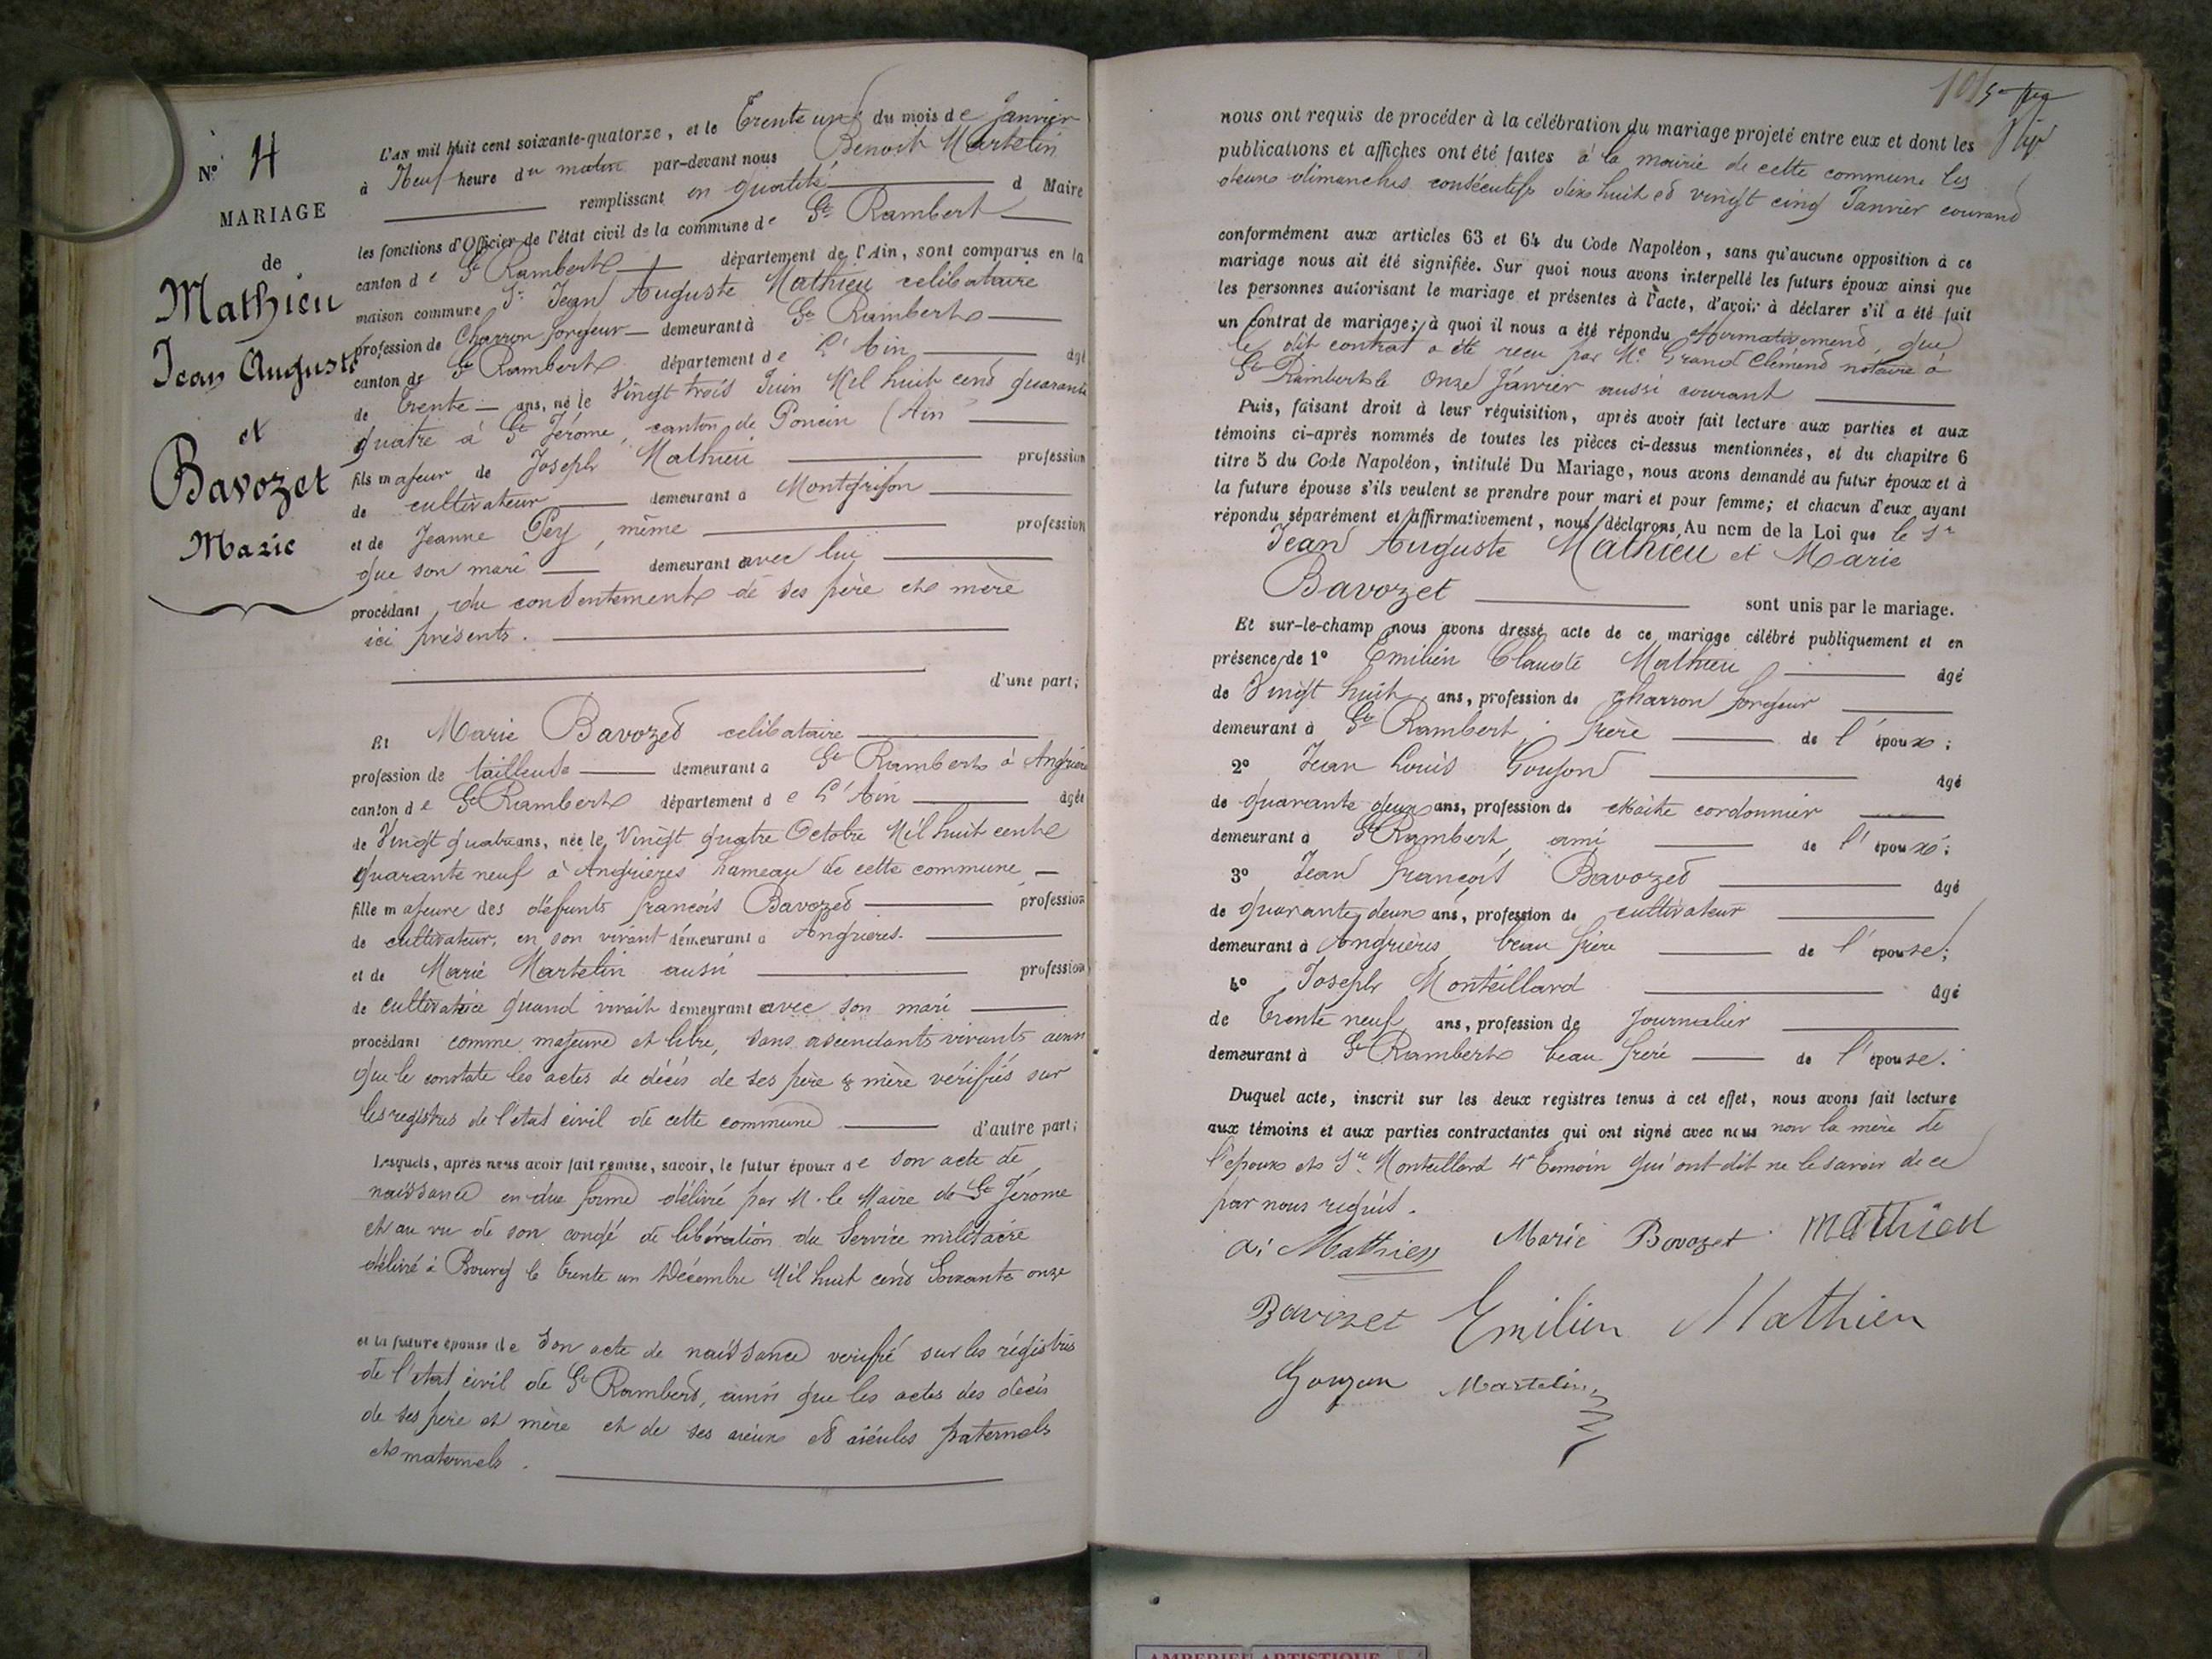 N° 4
MARIAGE
de
Mathieu
Jean Auguste
et
Bavozet
Marie
L'AN mil huit cent soixante-quatorze, et le Trente un du mois de Janvier
à Neuf heure du matin par-devant nous Benoit Martelin
remplissant en qualité d Maire
les fonctions d'Officier de l'état civil de la commune de St Rambert
canton de St Rambert département de l'Ain, sont comparus en la
maison commune Sr Jean Auguste Mathieu celibataire
profession de Charron forgeur demeurant à St Rambert
canton de St Rambert département de L'Ain âgé
de Trente ans, né le Vingt trois Juin Mil huit cent quarante
quatre à St Jérome, canton de Poncin (Ain
fils majeur de Joseph Mathieu profession
de cultivateur demeurant à Montgrifon
et de Jeanne Pey, même profession
que son mari demeurant avec lui
procédant du consentement de ses père et mère
ici présents.
d'une part;
Et Marie Bavozet celibataire
profession de tailleuse demeurant à St Rambert à Angrières
canton de St Rambert département de L'Ain âgée
de Vingt quatre ans, née le Vingt quatre Octobre Mil huit cent
quarante neuf à Angrières hameau de cette commune
fille majeure des défunts françois Bavozet profession
de cultivateur, en son vivant demeurant à Angrières.
et de Marie Martelin aussi profession
de cultivatrice quand vivait demeurant avec son mari
procédant comme majeure et libre, sans ascendants vivants ainsi
que le constate les actes de décès de ses père & mère vérifiés sur
les registres de l'état civil de cette commune d'autre part;
Lesquels, après nous avoir fait remise, savoir, le futur époux de son acte de
naissance en due forme délivré par M. le Maire de St Jérome
et au vu de son congé de libération du Service militaire
délivré à Bourg le trente un Décembre Mil huit cent Soixante onze
et la future épouse de son acte de naissance verifié sur les régistres
de l'etat civil de St Rambert, ainsi que les actes des décès
de ses père et mère et de ses aïeux et aïeules paternels
et maternels.
101
nous ont requis de procéder à la célébration du mariage projeté entre eux et dont les
publications et affiches ont été faites à la mairie de cette commune les
deux dimanches consécutifs dix huit et vingt cinq Janvier courant
conformément aux articles 63 et 64 du Code Napoléon, sans qu'aucune opposition à ce
mariage nous ait été signifiée. Sur quoi nous avons interpellé les futurs époux ainsi que
les personnes autorisant le mariage et présentes à l'acte, d'avoir à déclarer s'il a été fait
un contrat de mariage; à quoi il nous a été répondu Affirmativement, que
le dit contrat a été reçu par Me Grand Clément notaire à
St Rambert le Onze Janvier aussi courant
Puis, faisant droit à leur réquisition, après avoir fait lecture aux parties et aux
témoins ci-après nommés de toutes les pièces ci-dessus mentionnées, et du chapitre 6
titre 5 du Code Napoléon, intitulé Du Mariage, nous avons demandé au futur époux et à
la future épouse s'ils veulent se prendre pour mari et pour femme; et chacun d'eux ayant
répondu séparément et affirmativement, nous déclarons Au nom de la Loi que le Sr
Jean Auguste Mathieu et Marie
Bavozet sont unis par le mariage.
Et sur-le-champ nous avons dressé acte de ce mariage célébré publiquement et en
présence de 1° Emilien Claude Mathieu âgé
de Vingt huit ans, profession de Charron forgeur
demeurant à St Rambert, frère de l'époux;
2° Jean Louis Goujon âgé
de quarante deux ans, profession de Maître cordonnier
demeurant à St Rambert, ami de l'époux;
3° Jean françois Bavozet âgé
de quarante deux ans, profession de cultivateur
demeurant à Angrières, beau frère de l'épouse;
4° Joseph Monteillard âgé
de Trente neuf ans, profession de Journalier
demeurant à St Rambert beau frère de l'épouse.
Duquel acte, inscrit sur les deux registres tenus à cet effet, nous avons fait lecture
aux témoins et aux parties contractantes qui ont signé avec nous non la mère de
l'époux et Sr Monteillard 4e Témoin qui ont dit ne le savoir de ce
par nous requis.
ai Mathieu Marie Bavozet Mathieu
Bavozet Emilien Mathieu
Goujon Martelin
AMBERIEU ARTISTIQUE